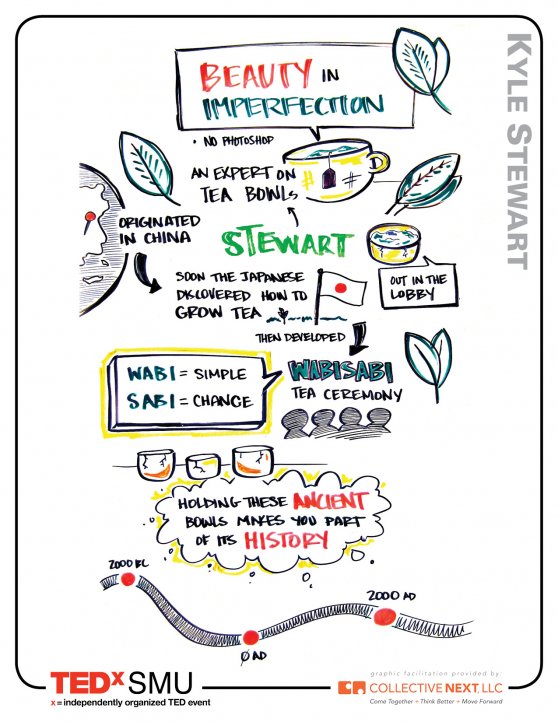 KYLE STEWART
BEAUTY IN
IMPERFECTION
• NO PHOTOSHOP
AN EXPERT ON
TEA BOWLS
# #
ORIGINATED
IN CHINA
STEWART
OUT IN THE
LOBBY
SOON THE JAPANESE
DISCOVERED HOW TO
GROW TEA
THEN DEVELOPED
WABISABI
TEA CEREMONY
WABI = SIMPLE
SABI = CHANGE
HOLDING THESE ANCIENT
BOWLS MAKES YOU PART
OF ITS HISTORY
2000 BC
0 AD
2000 AD
TEDxSMU
x = independently organized TED event
graphic facilitation provided by:
COLLECTIVE NEXT, LLC
Come Together + Think Better + Move Forward